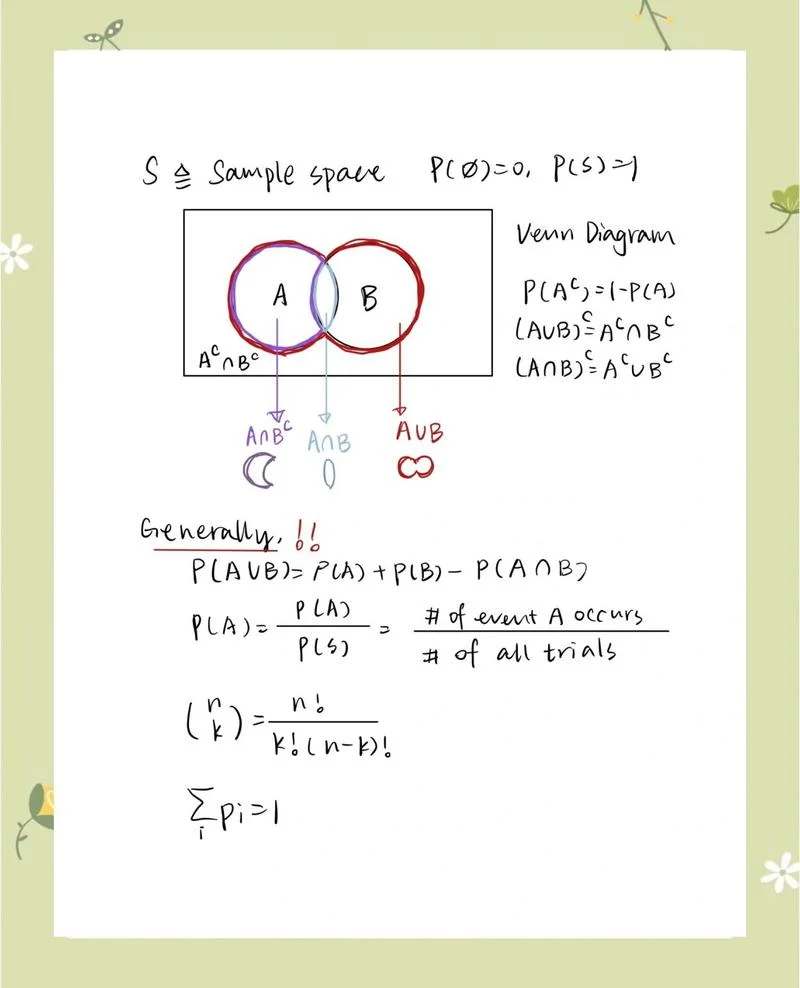 S ≙ Sample space P(∅)=0, P(S)=1
Venn Diagram
A B
P(Aᶜ)=1-P(A)
(A∪B)ᶜ=Aᶜ∩Bᶜ
(A∩B)ᶜ=Aᶜ∪Bᶜ
Aᶜ∩Bᶜ
A∩Bᶜ A∩B A∪B
Generally, !!
P(A∪B)=P(A)+P(B)-P(A∩B)
P(A)=P(A)/P(S)=# of event A occurs/# of all trials
(n k)=n!/k!(n-k)!
∑i pi=1